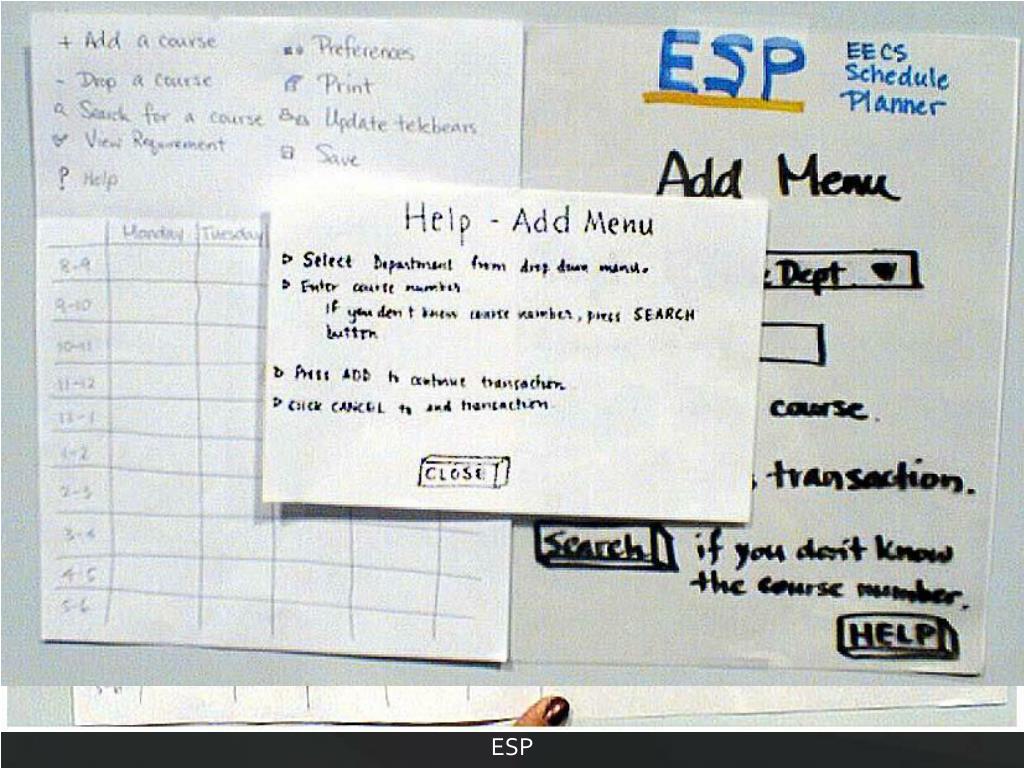 + Add a course
- Drop a course
Search for a course
View Requirement
? Help
Preferences
Print
Update telebears
Save
Monday Tuesday
8-9
9-10
10-11
11-12
12-1
1-2
2-3
3-4
4-5
5-6
Help - Add Menu
Select Department from drop down menu.
Enter course number
If you don't know course number, press SEARCH
button
Press ADD to continue transaction
Click CANCEL to end transaction
CLOSE
ESP
EECS
Schedule
Planner
Add Menu
Dept.
course.
transaction.
Search if you don't know
the course number.
HELP
ESP